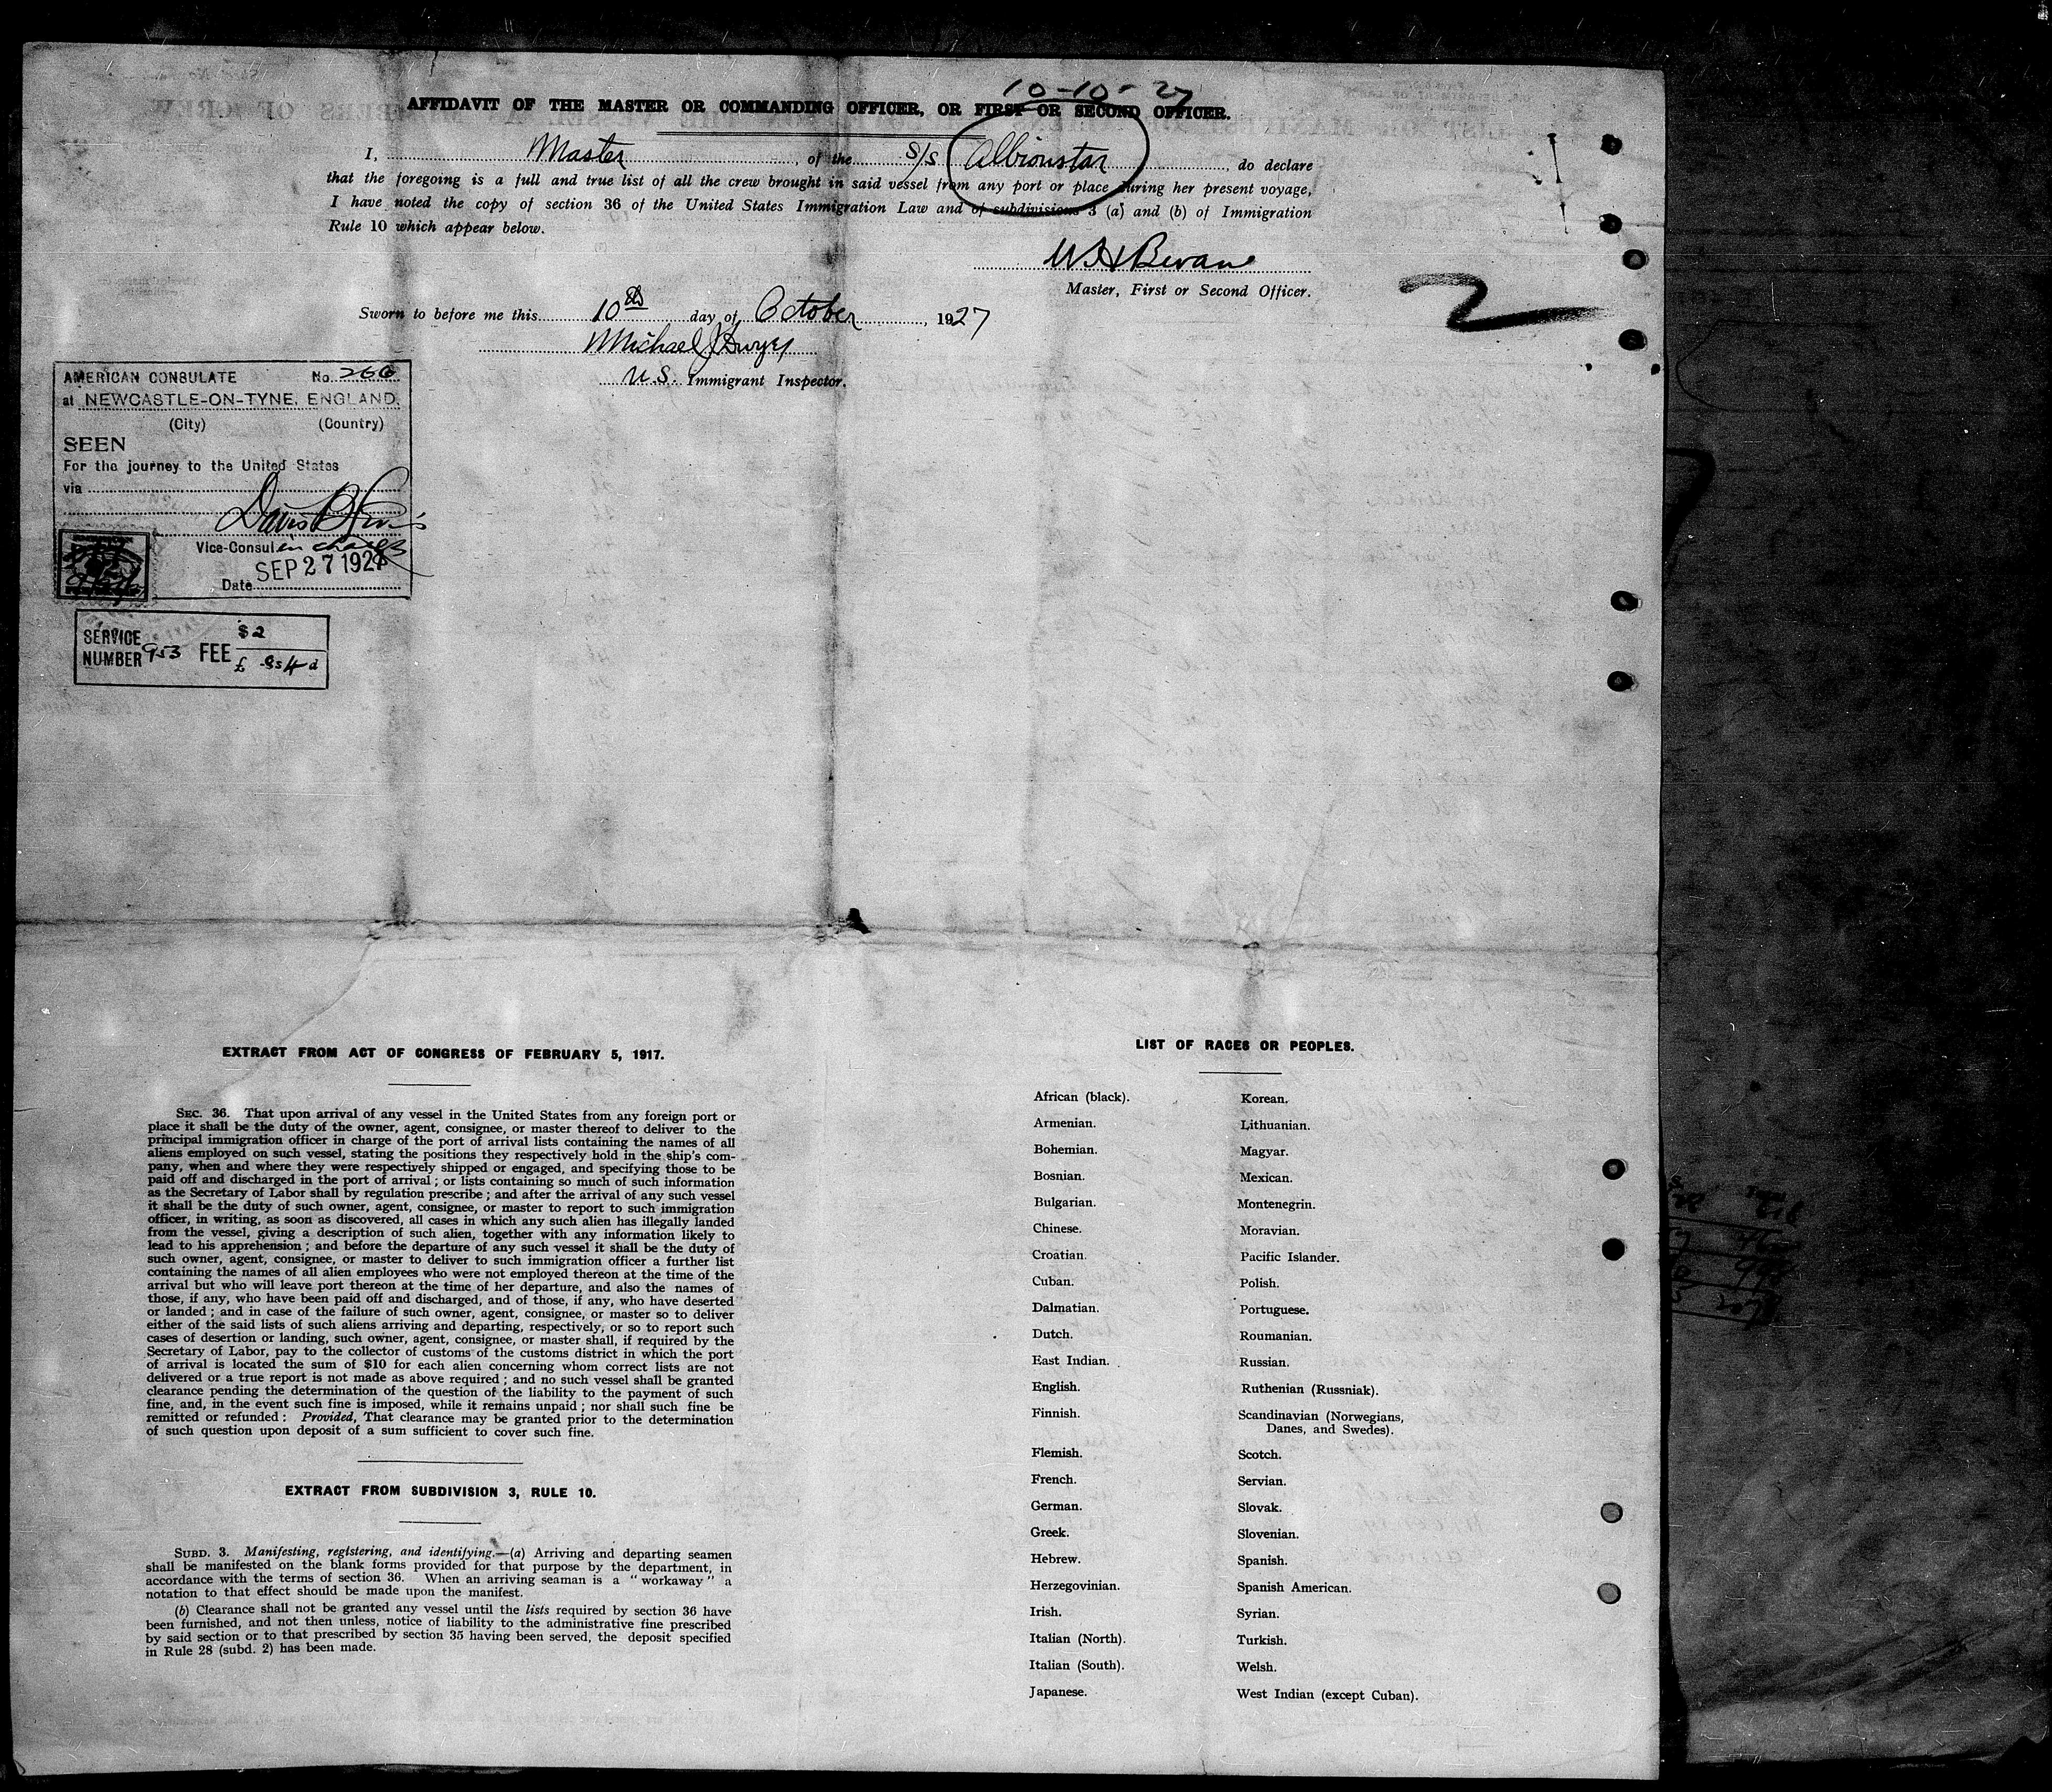 10-10-27
AFFIDAVIT OF THE MASTER OR COMMANDING OFFICER, OR FIRST OR SECOND OFFICER.
I, Master, of the S/S Albionstar, do declare
that the foregoing is a full and true list of all the crew brought in said vessel from any port or place during her present voyage,
I have noted the copy of section 36 of the United States Immigration Law and of subdivisions 3 (a) and (b) of Immigration
Rule 10 which appear below.
W H Bevans
Master, First or Second Officer.
2
Sworn to before me this 10th day of October, 1927
Michael J Dwyer
U.S. Immigrant Inspector.
AMERICAN CONSULATE No. 266
at NEWCASTLE-ON-TYNE, ENGLAND.
(City) (Country)
SEEN
For the journey to the United States
via
Vice-Consul in charge
Date SEP 27 1927
SERVICE NUMBER 953 FEE $2
£ 8s 4d
EXTRACT FROM ACT OF CONGRESS OF FEBRUARY 5, 1917.
SEC. 36. That upon arrival of any vessel in the United States from any foreign port or
place it shall be the duty of the owner, agent, consignee, or master thereof to deliver to the
principal immigration officer in charge of the port of arrival lists containing the names of all
aliens employed on such vessel, stating the positions they respectively hold in the ship's com-
pany, when and where they were respectively shipped or engaged, and specifying those to be
paid off and discharged in the port of arrival; or lists containing so much of such information
as the Secretary of Labor shall by regulation prescribe; and after the arrival of any such vessel
it shall be the duty of such owner, agent, consignee, or master to report to such immigration
officer, in writing, as soon as discovered, all cases in which any such alien has illegally landed
from the vessel, giving a description of such alien, together with any information likely to
lead to his apprehension; and before the departure of any such vessel it shall be the duty of
such owner, agent, consignee, or master to deliver to such immigration officer a further list
containing the names of all alien employees who were not employed thereon at the time of the
arrival but who will leave port thereon at the time of her departure, and also the names of
those, if any, who have been paid off and discharged, and of those, if any, who have deserted
or landed; and in case of the failure of such owner, agent, consignee, or master so to deliver
either of the said lists of such aliens arriving and departing, respectively, or so to report such
cases of desertion or landing, such owner, agent, consignee, or master shall, if required by the
Secretary of Labor, pay to the collector of customs of the customs district in which the port
of arrival is located the sum of $10 for each alien concerning whom correct lists are not
delivered or a true report is not made as above required; and no such vessel shall be granted
clearance pending the determination of the question of the liability to the payment of such
fine, and, in the event such fine is imposed, while it remains unpaid; nor shall such fine be
remitted or refunded: Provided, That clearance may be granted prior to the determination
of such question upon deposit of a sum sufficient to cover such fine.
EXTRACT FROM SUBDIVISION 3, RULE 10.
SUBD. 3. Manifesting, registering, and identifying.—(a) Arriving and departing seamen
shall be manifested on the blank forms provided for that purpose by the department, in
accordance with the terms of section 36. When an arriving seaman is a "workaway" a
notation to that effect should be made upon the manifest.
(b) Clearance shall not be granted any vessel until the lists required by section 36 have
been furnished, and not then unless, notice of liability to the administrative fine prescribed
by said section or to that prescribed by section 35 having been served, the deposit specified
in Rule 28 (subd. 2) has been made.
LIST OF RACES OR PEOPLES.
African (black).
Armenian.
Bohemian.
Bosnian.
Bulgarian.
Chinese.
Croatian.
Cuban.
Dalmatian.
Dutch.
East Indian.
English.
Finnish.
Flemish.
French.
German.
Greek.
Hebrew.
Herzegovinian.
Irish.
Italian (North).
Italian (South).
Japanese.
Korean.
Lithuanian.
Magyar.
Mexican.
Montenegrin.
Moravian.
Pacific Islander.
Polish.
Portuguese.
Roumanian.
Russian.
Ruthenian (Russniak).
Scandinavian (Norwegians,
Danes, and Swedes).
Scotch.
Servian.
Slovak.
Slovenian.
Spanish.
Spanish American.
Syrian.
Turkish.
Welsh.
West Indian (except Cuban).